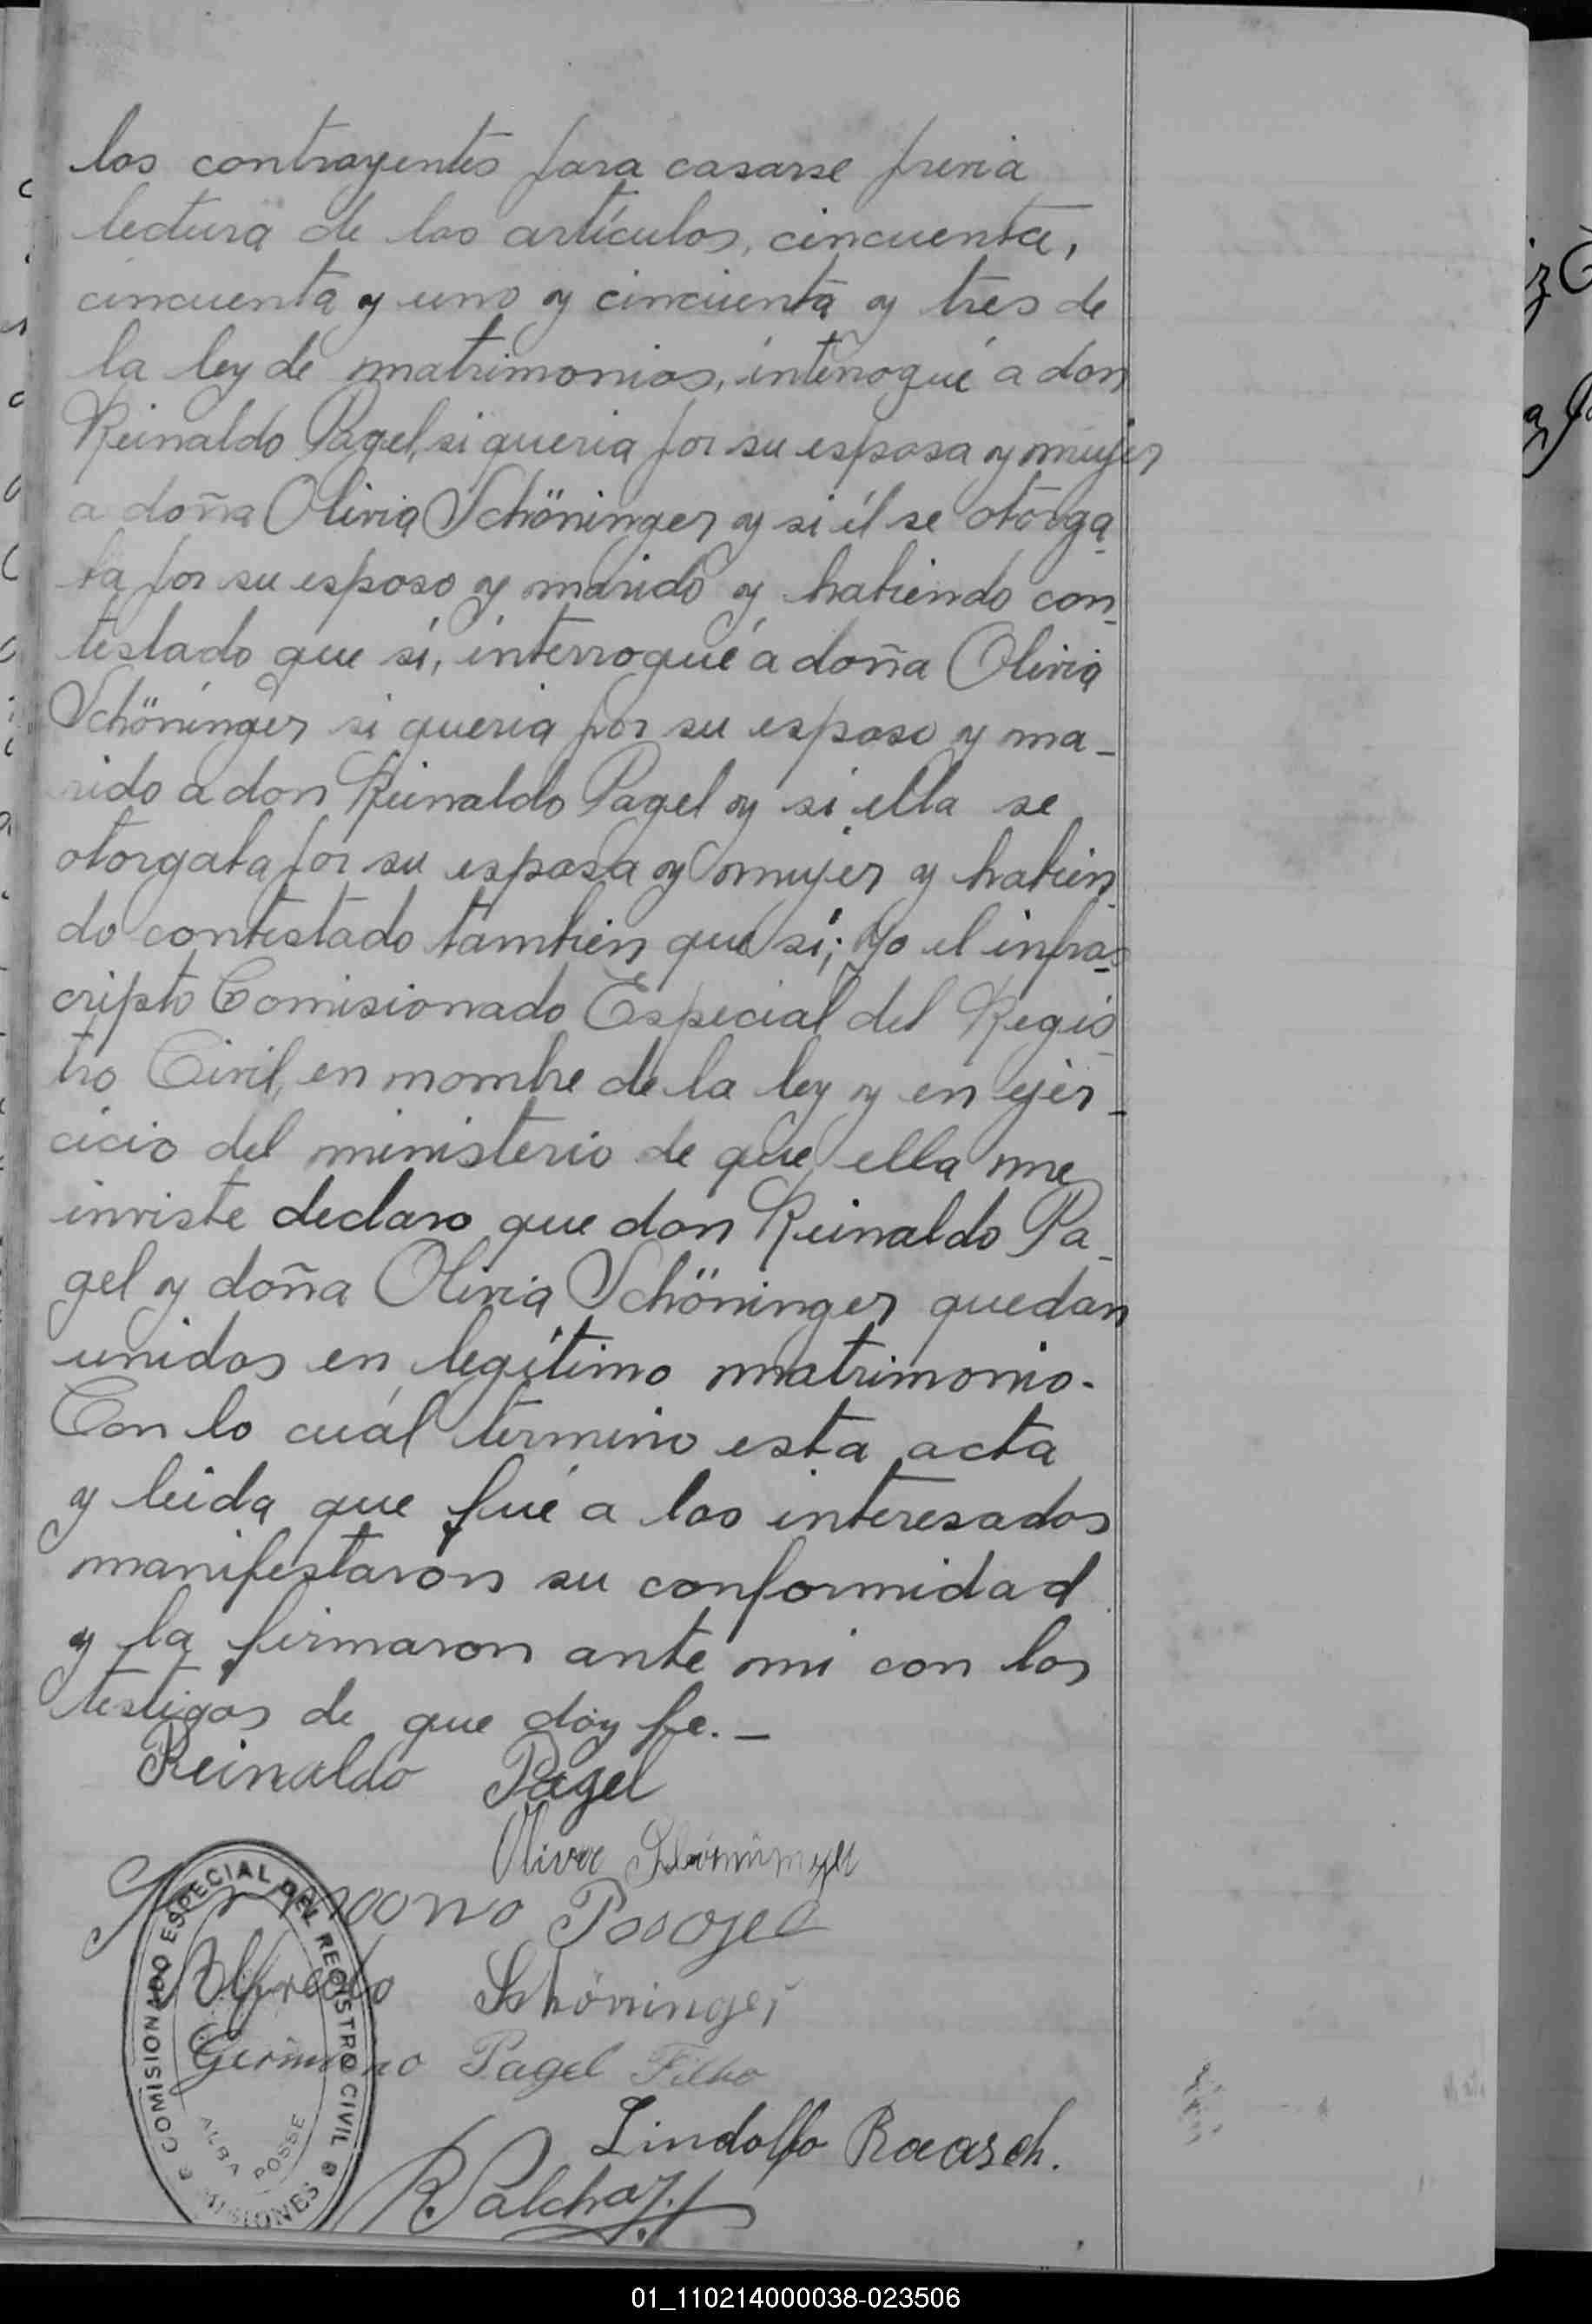 los contrayentes para casarse previa
lectura de los artículos, cincuenta,
cincuenta y uno y cincuenta y tres de
la ley de matrimonios, interrogué a don
Reinaldo Pagel, si queria por su esposa y mujer
a doña Olivia Schöninger y si él se otorga_
ba por su esposo y marido y habiendo con_
testado que sí, interrogué a doña Olivia
Schöninger si queria por su esposo y ma_
rido a don Reinaldo Pagel y si ella se
otorgaba por su esposa y mujer y habien_
do contestado tambien que sí; Yo el infras_
cripto Comisionado Especial del Regis_
tro Civil, en nombre de la ley y en ejer_
cicio del ministerio de que ella me
inviste declaro que don Reinaldo Pa_
gel y doña Olivia Schöninger quedan
unidos en legítimo matrimonio.
Con lo cuál terminó esta acta
y leida que fué a los interesados
manifestaron su conformidad
y la firmaron ante mi con los
testigos de que doy fe._
Reinaldo Pagel
Olivia
Alfredo Schöninger
Germano Pagel Filho
Lindolfo Raasch.
COMISIONADO ESPECIAL DEL REGISTRO CIVIL
ALBA POSSE
MISIONES
01_110214000038-023506